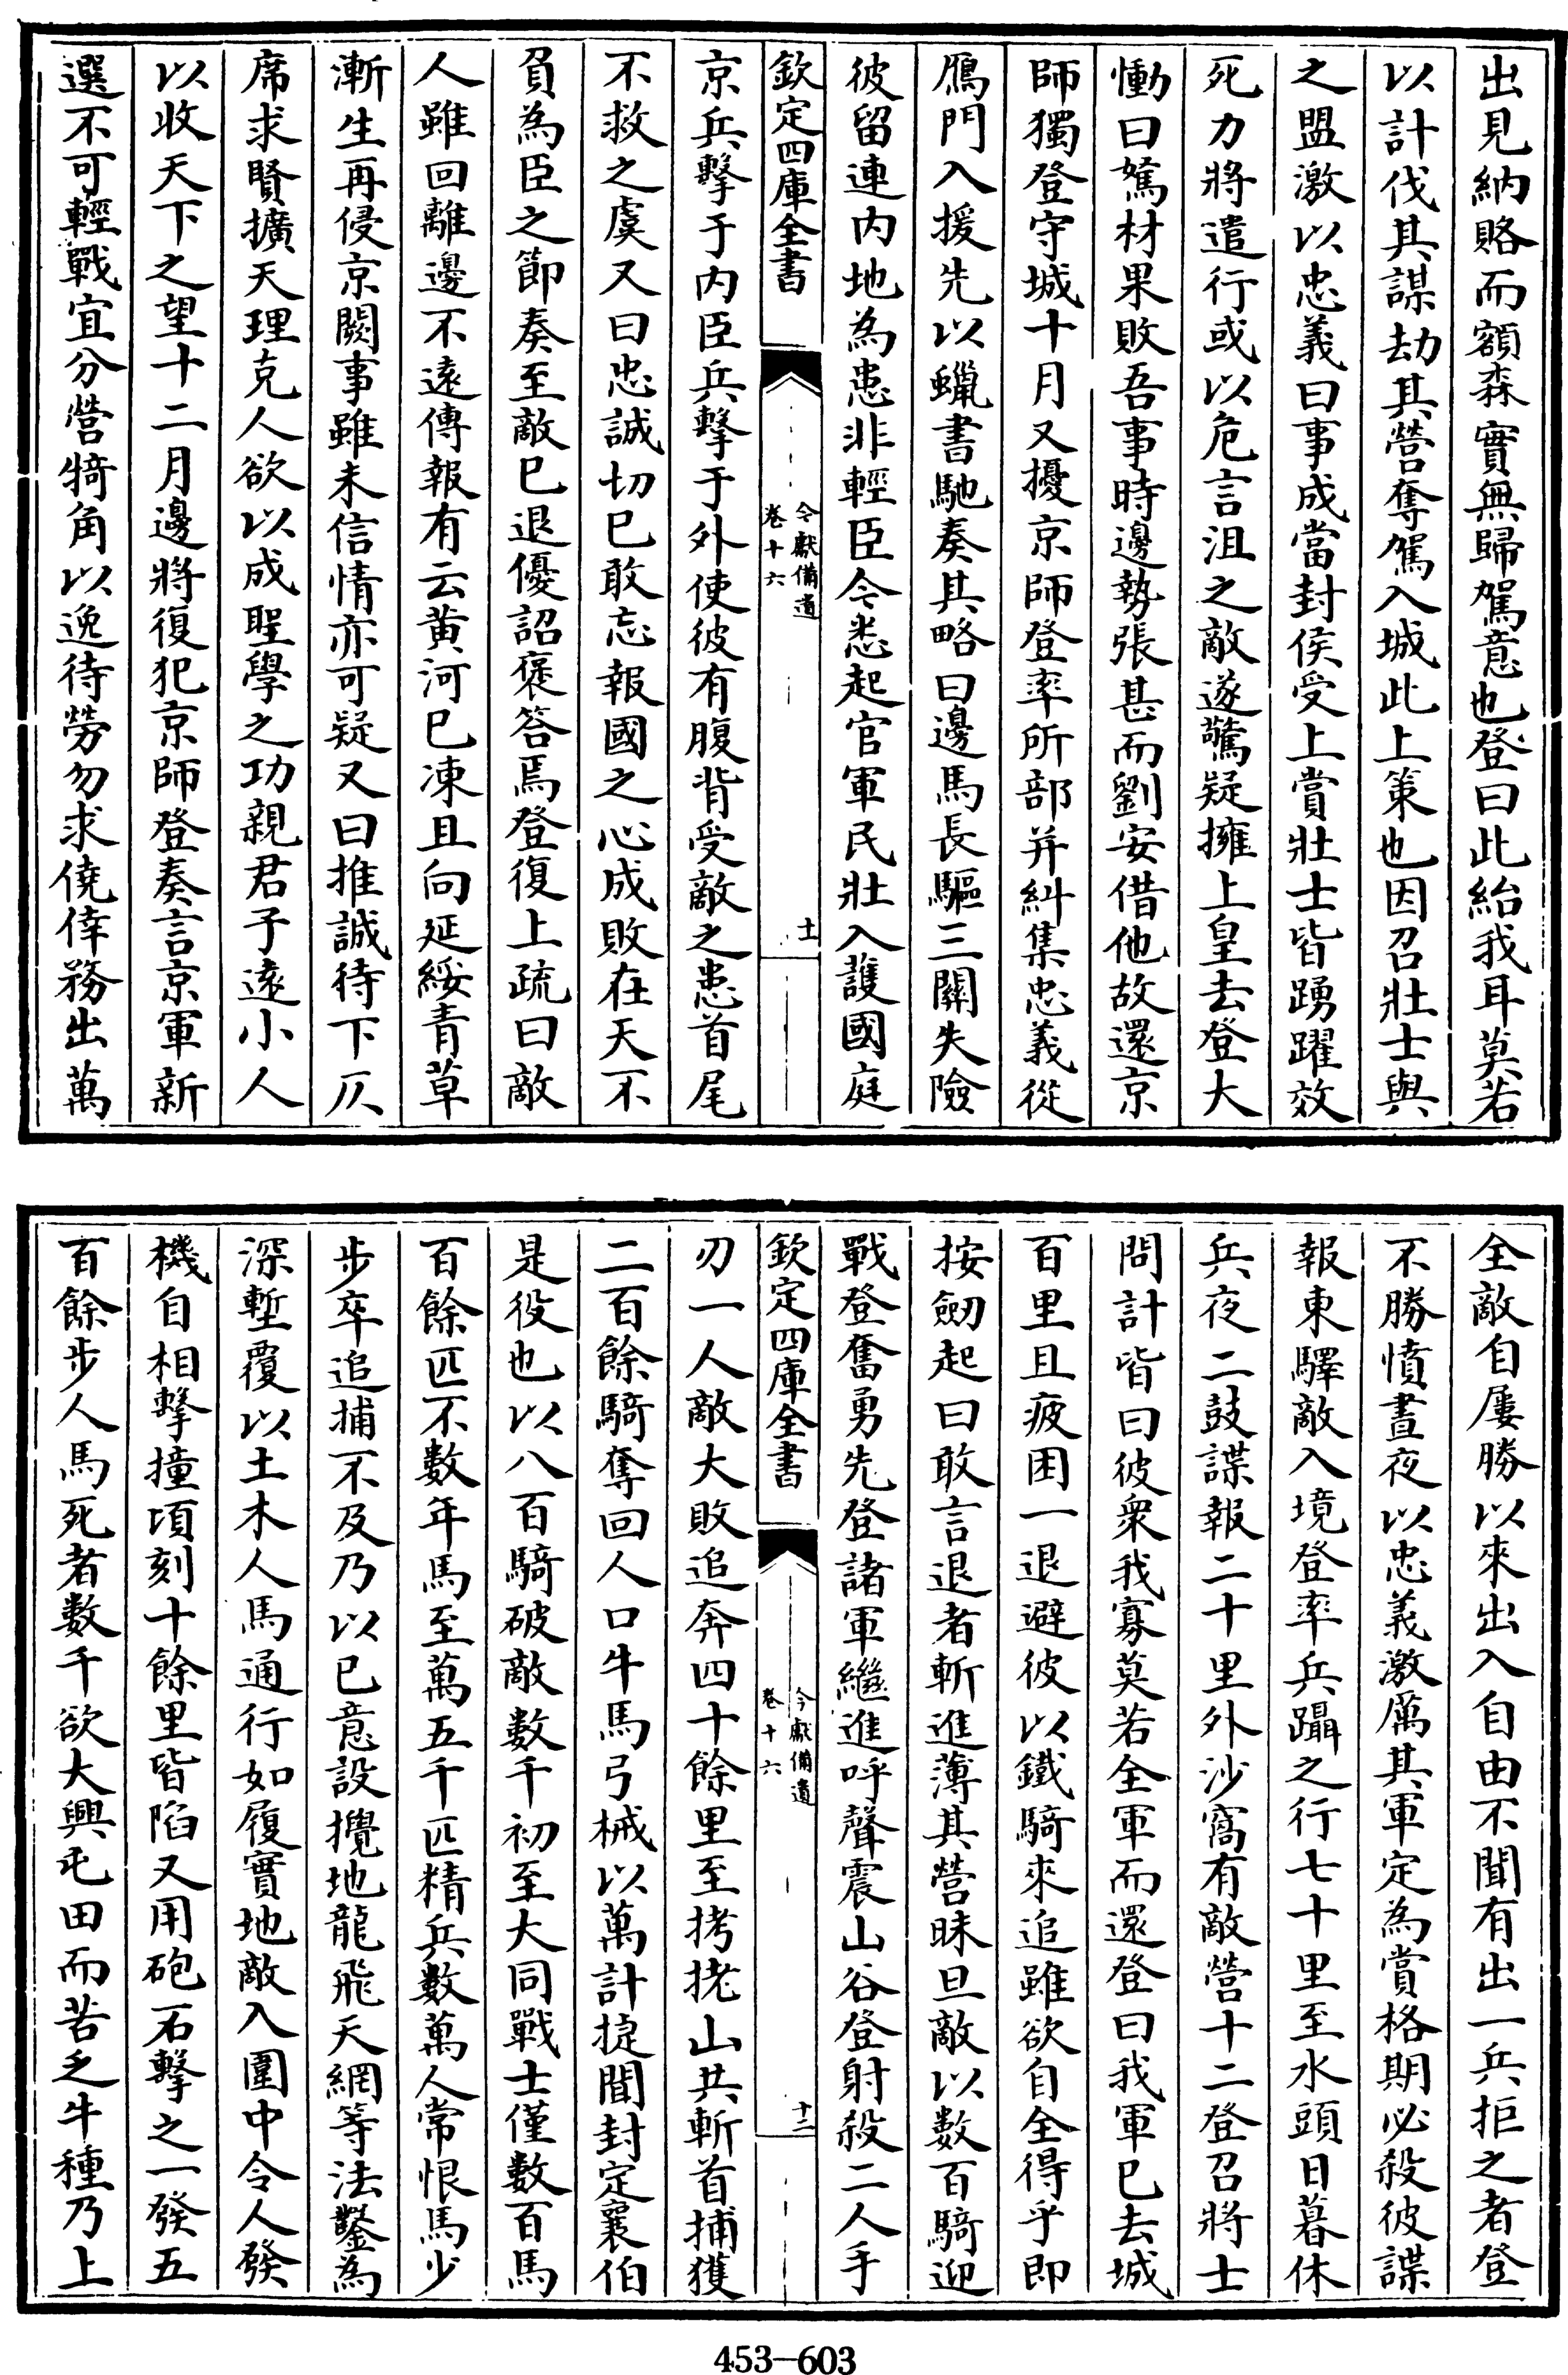 出見納賂而額森實無歸駕意也登曰此紿我耳莫若
以計伐其謀劫其營奪駕入城此上策也因召壯士與
之盟激以忠義曰事成當封侯受上賞壯士皆踴躍效
死力將遣行或以危言沮之敵遂驚疑擁上皇去登大
慟曰駑材果敗吾事時邊勢張甚而劉安借他故還京
師獨登守城十月又擾京師登率所部并糾集忠義從
鴈門入援先以蠟書馳奏其略曰邊馬長驅三關失險
彼留連內地為患非輕臣今悉起官軍民壯入護國庭
欽定四庫全書
今獻備遺
卷十六
十一
京兵擊于內臣兵擊于外使彼有腹背受敵之患首尾
不救之虞又曰忠誠切已敢忘報國之心成敗在天不
負為臣之節奏至敵已退優詔褒答焉登復上疏曰敵
人雖回離邊不遠傳報有云黃河已凍且向延綏青草
漸生再侵京闕事雖未信情亦可疑又曰推誠待下仄
席求賢擴天理克人欲以成聖學之功親君子遠小人
以收天下之望十二月邊將復犯京師登奏言京軍新
選不可輕戰宜分營犄角以逸待勞勿求僥倖務出萬
全敵自屢勝以來出入自由不聞有出一兵拒之者登
不勝憤晝夜以忠義激厲其軍定為賞格期必殺彼諜
報東驛敵入境登率兵躡之行七十里至水頭日暮休
兵夜二鼓諜報二十里外沙窩有敵營十二登召將士
問計皆曰彼衆我寡莫若全軍而還登曰我軍已去城
百里且疲困一退避彼以鐵騎來追雖欲自全得乎即
按劒起曰敢言退者斬進薄其營昧旦敵以數百騎迎
戰登奮勇先登諸軍繼進呼聲震山谷登射殺二人手
欽定四庫全書
今獻備遺
卷十六
十二
刃一人敵大敗追奔四十餘里至栲栳山共斬首捕獲
二百餘騎奪回人口牛馬弓械以萬計捷聞封定襄伯
是役也以八百騎破敵數千初至大同戰士僅數百馬
百餘匹不數年馬至萬五千匹精兵數萬人常恨馬少
步卒追捕不及乃以已意設攪地龍飛天網等法鑿為
深塹覆以土木人馬通行如履實地敵入圍中令人發
機自相擊撞頃刻十餘里皆陷又用砲石擊之一發五
百餘步人馬死者數千欲大興屯田而苦乏牛種乃上
453—603